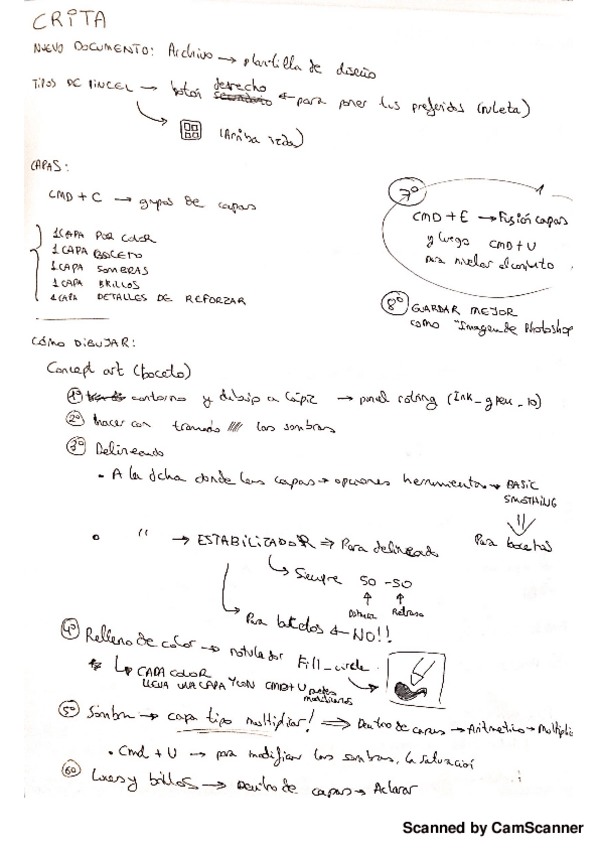 CRITA
NUEVO DOCUMENTO: Archivo → plantilla de diseño
TIPOS DE PINCEL → botón derecho secundario ← para poner tus preferidos (ruleta)
(Arriba izda)
CAPAS:
CMD + C → grupos de capas
1 CAPA POR COLOR
1 CAPA BOCETO
1 CAPA SOMBRAS
1 CAPA BRILLOS
1 CAPA DETALLES DE REFORZAR
7º
CMD + E → Fusión capas
y luego CMD + U
para nivelar el conjunto
8º GUARDAR MEJOR
como "Imagen de Photoshop
CÓMO DIBUJAR:
Concept art (boceto)
1º contorno y dibujo a lápiz → pincel rotring (Ink_gpen_10)
2º hacer con tramado //// las sombras
3º Delineando
• A la dcha donde las capas → opciones herramientas → BASIC
SMOTHING
⇓
Para bocetos
• " → ESTABILIZADOR ⇒ Para delineado
↳ Siempre 50 - 50
↑ ↑
Distancia Retraso
↳ Para bocetos ← NO!!
4º Relleno de color → rotulador Fill_circle
↳ CADA COLOR
LLEVA UNA CAPA Y CON CMD+U puedes
modificarlos
5º Sombra → capa tipo multipliar! ⇒ Dentro de capas → Aritmetico → Multiplic
• Cmd + U → para modificar las sombras, la saturación
6º Luces y brillos → Dentro de capas → Aclarar
Scanned by CamScanner